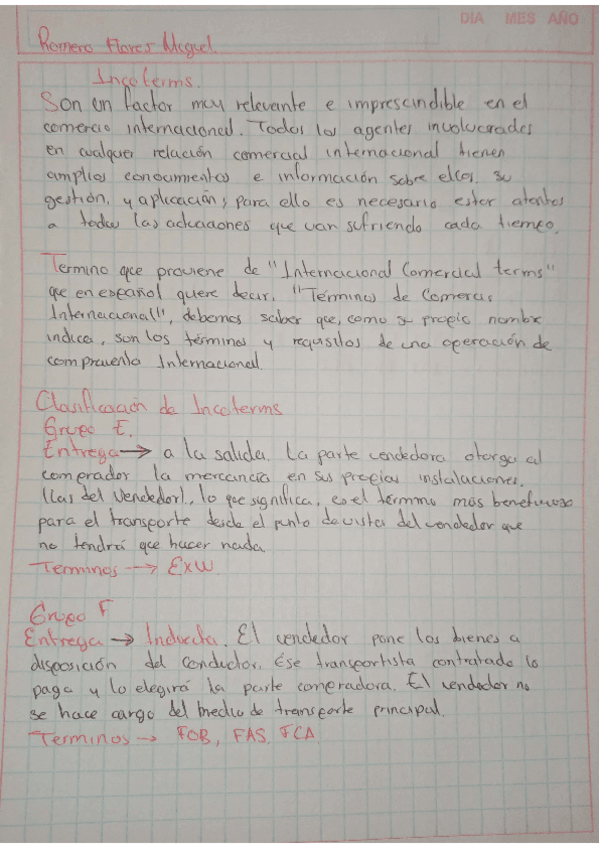 DIA MES AÑO
Romero Flores Miguel.
Incoterms.
Son un factor muy relevante e imprescindible en el
comercio internacional. Todos los agentes involucrados
en cualquer relación comercial internacional tienen
amplios conocimientos e información sobre ellos, su
gestión, y aplicación, para ello es necesario estar atentos
a todas las actuaciones que van sufriendo cada tiempo.
Termino que proviene de "Internacional Comercial terms"
que en español quere decir, "Términos de Comercio
Internacional", debemos saber que, como su propio nombre
indica, son los términos y requisitos de una operación de
compraventa Internacional.
Clasificación de Incoterms
Grupo E.
Entrega → a la salida. La parte vendedora otorga al
comprador la mercancia en sus propias instalaciones.
(Las del Vendedor), lo que significa, es el termino más beneficioso
para el transporte desde el punto de vista del vendedor que
no tendrá que hacer nada.
Terminos → EXW.
Grupo F
Entrega → Indirecta. El vendedor pone los bienes a
disposición del conductor. Ése transportista contratado lo
paga y lo elegirá la parte compradora. El vendedor no
se hace cargo del medio de transporte principal.
Terminos → FOB, FAS, FCA